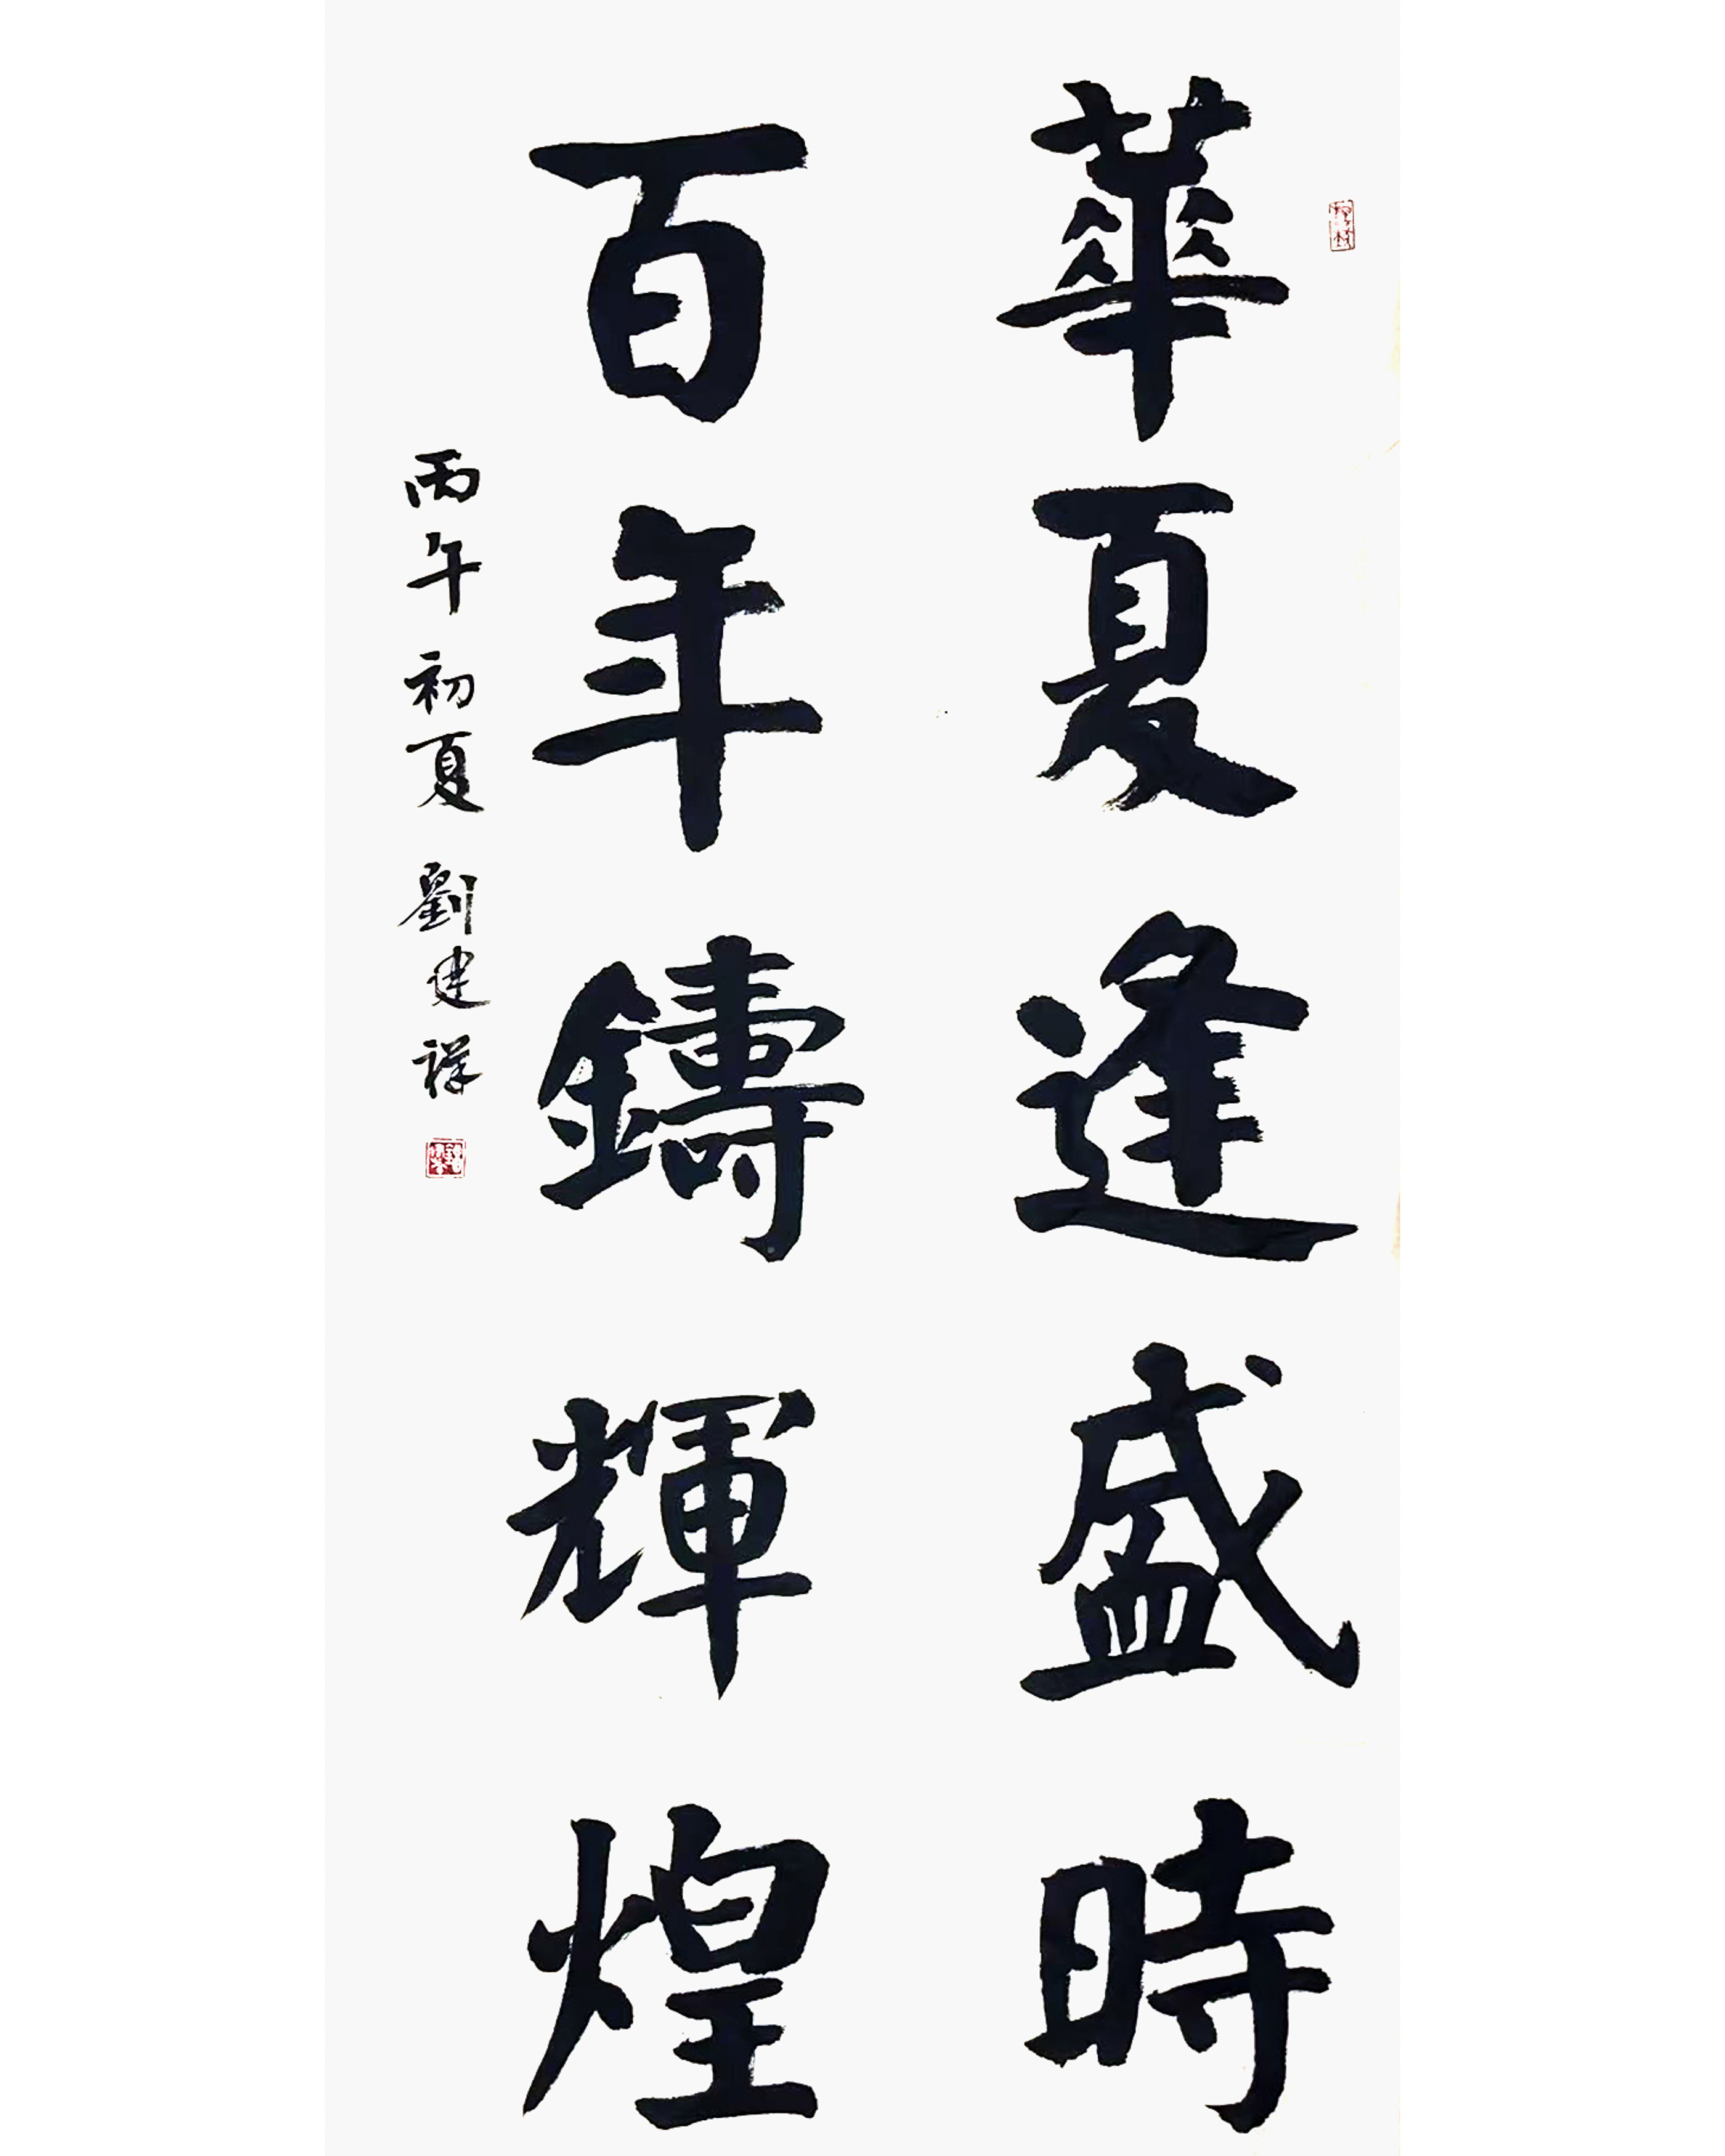 華夏逢盛時
百年鑄輝煌
丙午初夏 劉建祥